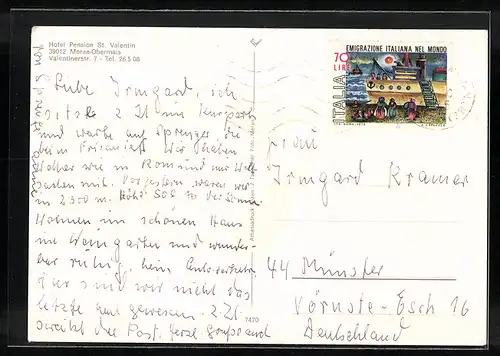 Hotel Pension St. Valentin
39012 Meran-Obermais
Valentinerstr. 7 - Tel. 26 5 08
Liebe Irmgard, ich
sitze 2 St im Kurpark
und warte auf Sprenger die
beim Friseur ist. Wir haben
Wetter wie in Rom und nur
mit. Vorgestern waren wir
in 2300 m. Höhe
Wohnen im schönen Haus
im Weingarten und wunder-
bar ruhig, kein Autoverkehr
hier sind wir nicht das
letzte mal gewesen. z. Zt.
streikt die Post. herzl.
7470
EMIGRAZIONE ITALIANA NEL MONDO
70
LIRE
ITALIA
Frau
Irmgard Kramer
44 Münster
Vörnste-Esch 16
Deutschland